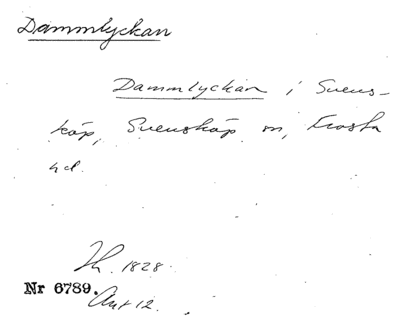 Dammlyckan
Dammlyckan i Svens-
köp, Svensköp sn, Frosta
hd.
Th. 1828.
Nr 6789.
Akt 12.